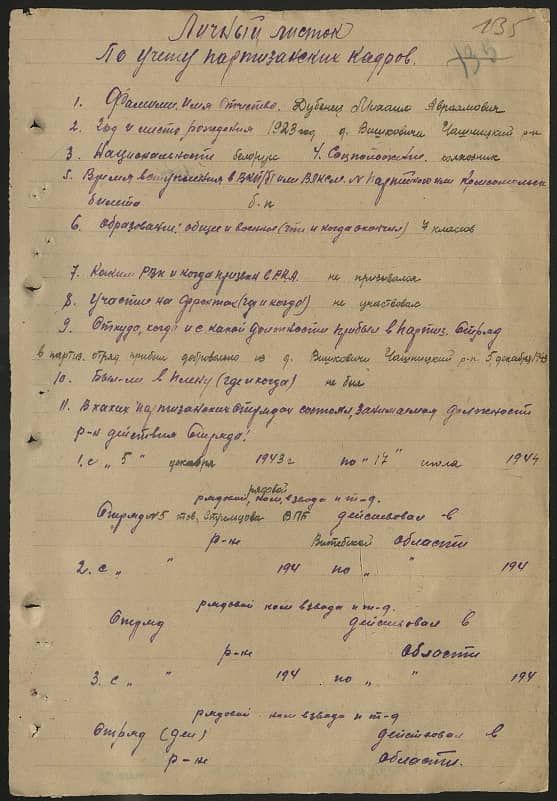 135
135
Личный листок
По учету партизанских кадров.
1. Фамилия. Имя Отчество. Дубенец Михаил Авраамович
2. Год и место рождения 1923 год д. Вишковичи Чашницкий р-н
3. Национальность белорус 4. Соцположение. колхозник
5. Время вступления в ВКП(б) или ВЛКСМ. № Партийного или Комсомольск.
билета б. п
6. Образование: общее и военное (что и когда окончил) 7 классов
7. Каким РВК и когда призван в РККА. не призывался
8. Участие на фронтах (где и когда) не участвовал
9. Откуда, когда и с какой должности прибыл в партиз. Отряд
в партиз. отряд прибыл добровольно из д. Вишковичи Чашницкий р-н. 5 декабря 1943
10. Был-ли в плену (где и когда) не был
11. В каких партизанских отрядах состоял, занимаемая должность
р-н действия Отряда!
1. с „ 5 " декабря 1943 г по „ 17 " июля 1944
рядовой
рядовой, ком. взвода и т-д.
Отряд № 5 тов. ВПБ действовал в
р-не Витебской области
2. с „ " 194 по „ " 194
рядовой ком взвода и т-д.
Отряд действовал в
р-не Области
3. с „ " 194 по „ " 194
рядовой ком взвода и т-д
Отряд действовал в
р-не Области.